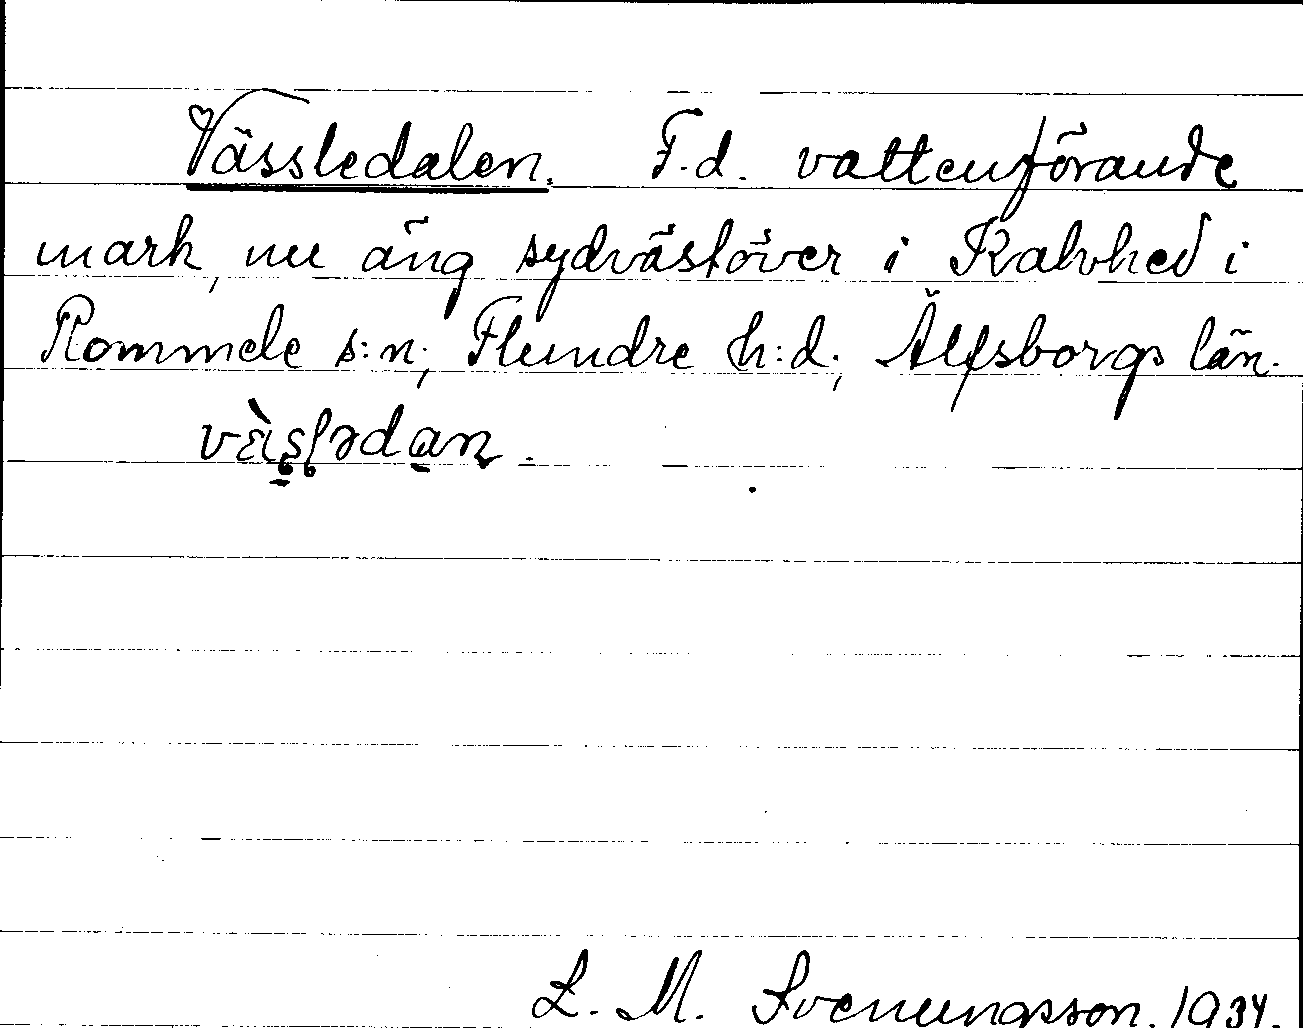 Vässledalen. F.d. vattenförande
mark, nu äng sydvästöver i Kalvhed i
Rommele s:n, Flundre h:d, Älfsborgs län.
L. M. Svenungsson. 1934.